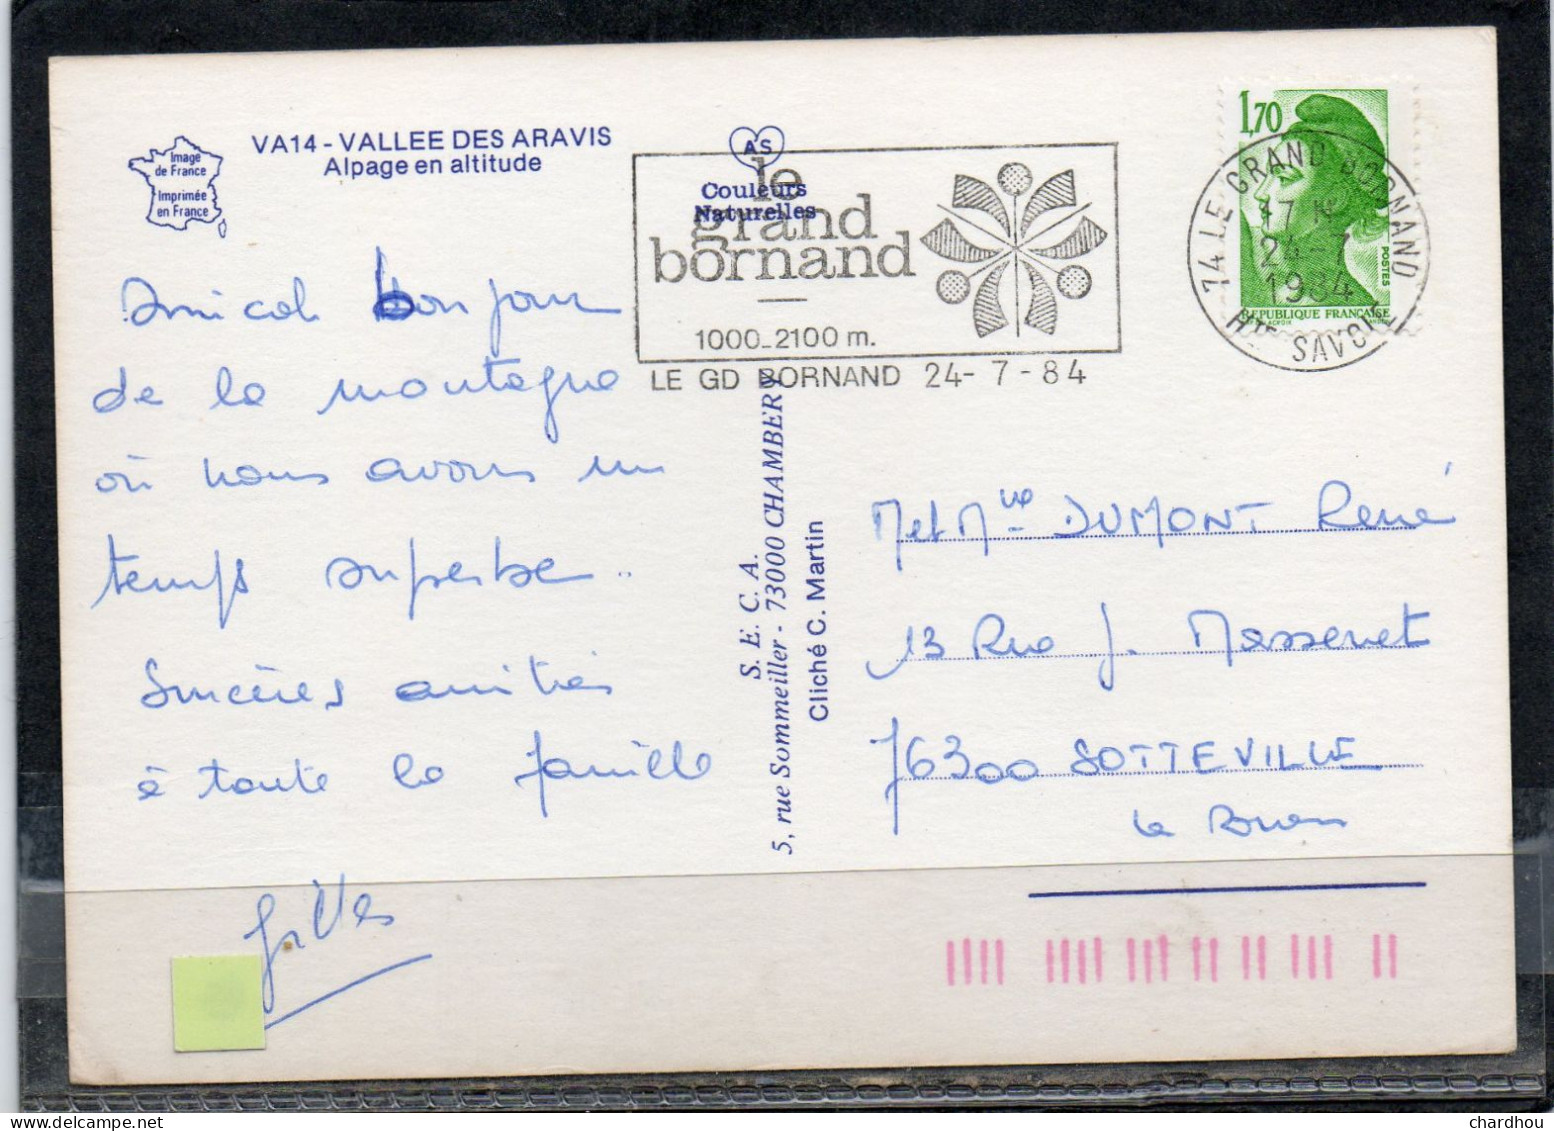 VA14 - VALLEE DES ARAVIS
Alpage en altitude
Image
de France
Imprimée
en France
AS
Couleurs
Naturelles
le
grand
bornand
1000_2100 m.
LE GD BORNAND 24-7-84
1,70
POSTES
REPUBLIQUE FRANÇAISE
74 LE GRAND BORNAND
17 H
24-7
1984
HTE SAVOIE
Amical bonjour
de la montagne
où nous avons un
temps superbe..
Sincères amitiés
à toute la famille
Gilles
S. E. C. A.
5, rue Sommeiller - 73000 CHAMBERY
Cliché C. Martin
M et Mme DUMONT René
13 Rue J. Massenet
76300 SOTTEVILLE
le Rouen
chardhou